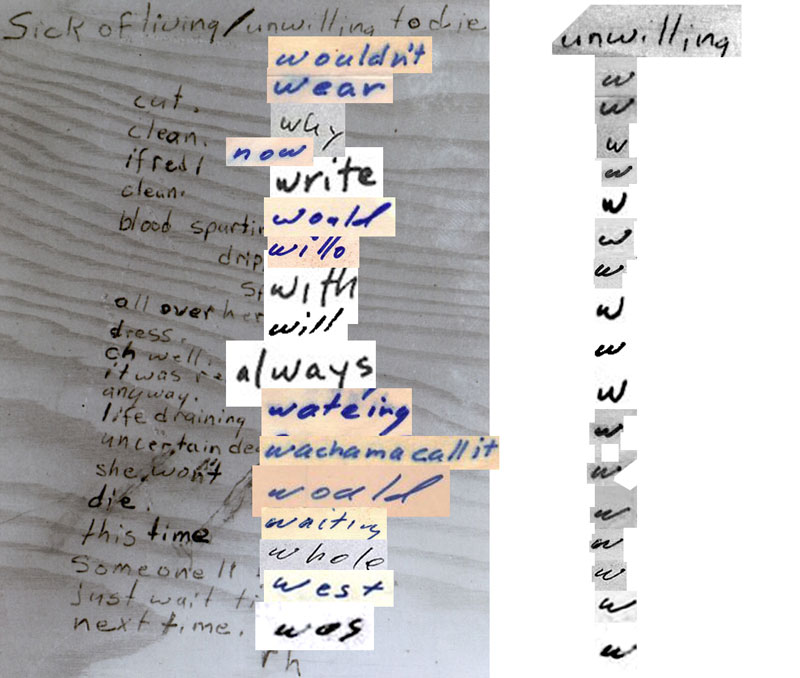 Sick of living/unwilling to die
unwilling
wouldn't
wear
w
cut.
why
w
clean.
now
w
if red/
write
w
clean.
w
blood spurtin
would
w
drip
willo
w
s
with
w
all over her
will
w
dress.
oh well,
always
w
it was re
anyway.
wate'ing
w
life draining
uncertain de
wachamacallit
w
she won't
would
w
die.
this time
waiting
w
someone ll
whole
w
just wait ti
west
w
next time.
was
w
rh